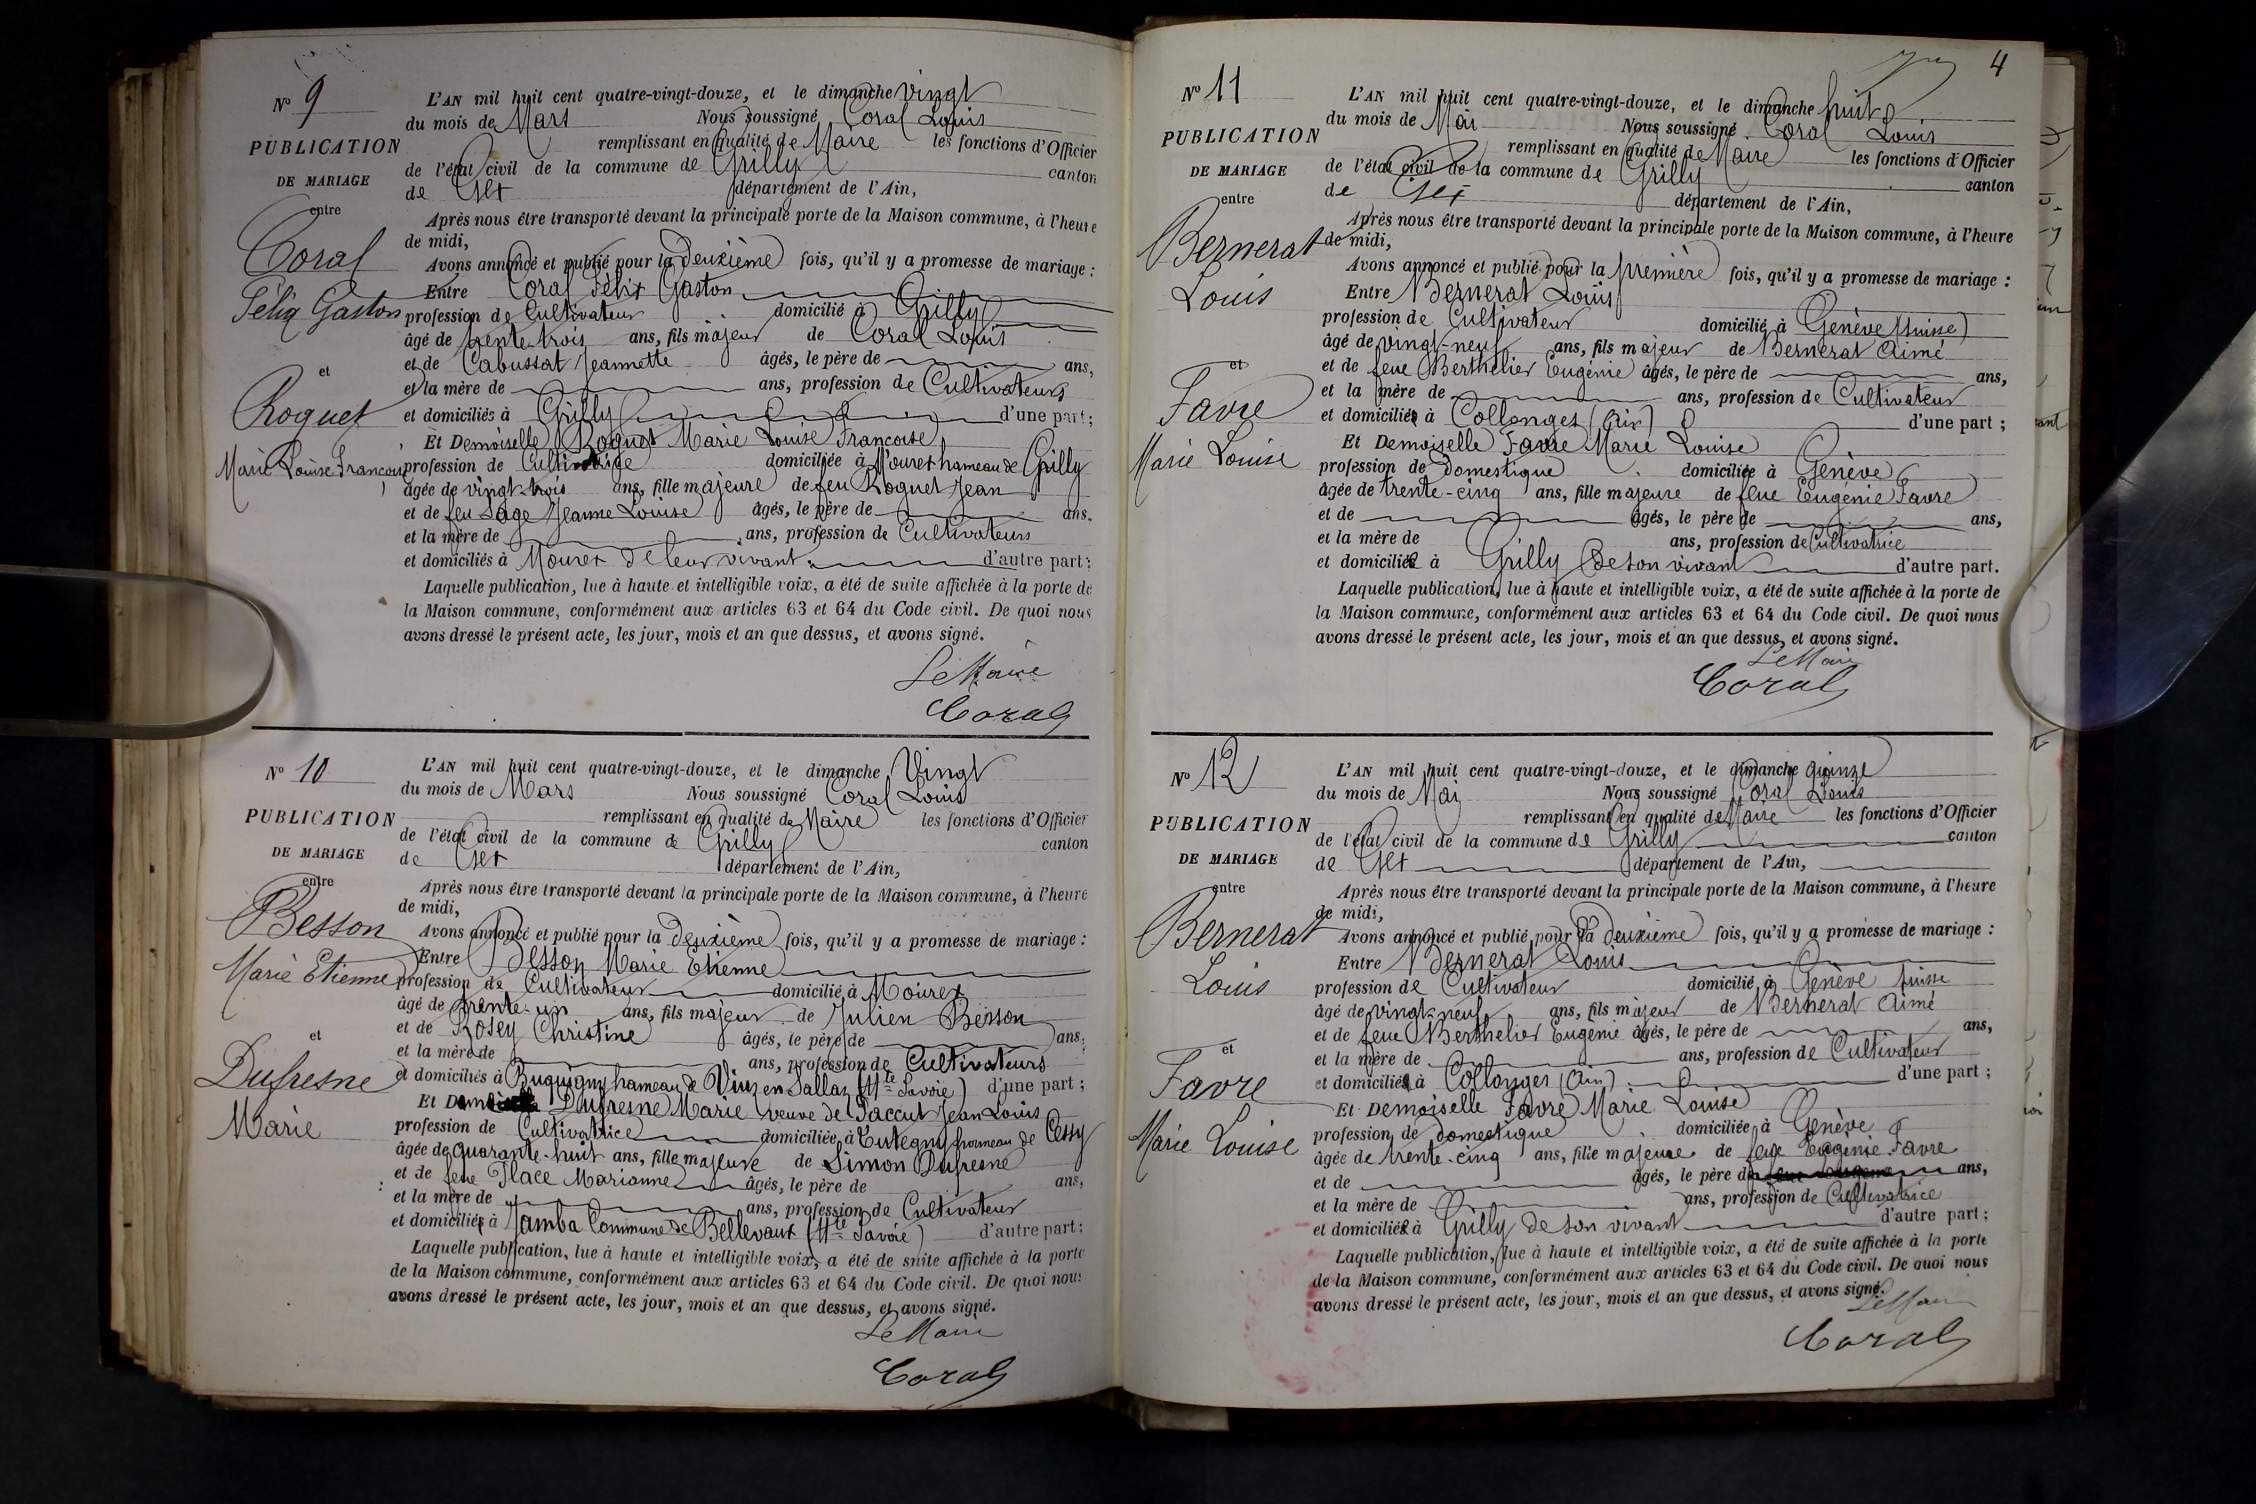 Nº 9
PUBLICATION
DE MARIAGE
entre
Coral
Félix Gaston
et
Roguet
Marie Louise Françoise
L'AN mil huit cent quatre-vingt-douze, et le dimanche vingt
du mois de Mars Nous soussigné Coral Louis
remplissant en qualité de Maire les fonctions d'Officier
de l'état civil de la commune de Grilly canton
de Gex département de l'Ain,
Après nous être transporté devant la principale porte de la Maison commune, à l'heure
de midi,
Avons annoncé et publié pour la Deuxième fois, qu'il y a promesse de mariage :
Entre Coral Félix Gaston
profession de Cultivateur domicilié à Grilly
âgé de trente trois ans, fils majeur de Coral Louis
et de Cabussat Jeannette âgés, le père de ans,
et la mère de ans, profession de Cultivateurs
et domiciliés à Grilly d'une part ;
Et Demoiselle Roguet Marie Louise Françoise
profession de domiciliée à Mourex hameau de Grilly
âgée de vingt-trois ans, fille majeure de feu Roguet Jean
et de feu Sage Jeanne Louise âgés, le père de ans,
et la mère de ans, profession de Cultivateurs
et domiciliés à Mourex de leur vivant d'autre part ;
Laquelle publication, lue à haute et intelligible voix, a été de suite affichée à la porte de
la Maison commune, conformément aux articles 63 et 64 du Code civil. De quoi nous
avons dressé le présent acte, les jour, mois et an que dessus, et avons signé.
Le Maire
Coral
Nº 10
PUBLICATION
DE MARIAGE
entre
Besson
Marie Etienne
et
Dufresne
Marie
L'AN mil huit cent quatre-vingt-douze, et le dimanche Vingt
du mois de Mars Nous soussigné Coral Louis
remplissant en qualité de Maire les fonctions d'Officier
de l'état civil de la commune de Grilly canton
de Gex département de l'Ain,
Après nous être transporté devant la principale porte de la Maison commune, à l'heure
de midi,
Avons annoncé et publié pour la Deuxième fois, qu'il y a promesse de mariage :
Entre Besson Marie Etienne
profession de Cultivateur domicilié à Mourex
âgé de trente-un ans, fils majeur de Julien Besson
et de Rosey Christine âgés, le père de ans,
et la mère de ans, profession de Cultivateurs
et domiciliés à hameau de Viuz en Sallaz (Hte Savoie) d'une part ;
Et Dufresne Marie veuve de Jaccut Jean Louis
profession de Cultivatrice domiciliée à Tutegny hameau de Cessy
âgée de quarante-huit ans, fille majeure de Simon Dufresne
et de feue Place Marianne âgés, le père de ans,
et la mère de ans, profession de Cultivateur
et domicilié à Jamba Commune de Bellevaux (Hte Savoie) d'autre part ;
Laquelle publication, lue à haute et intelligible voix, a été de suite affichée à la porte
de la Maison commune, conformément aux articles 63 et 64 du Code civil. De quoi nous
avons dressé le présent acte, les jour, mois et an que dessus, et avons signé.
Le Maire
Coral
4
Nº 11
PUBLICATION
DE MARIAGE
entre
Bernerat
Louis
et
Favre
Marie Louise
L'AN mil huit cent quatre-vingt-douze, et le dimanche huit
du mois de Mai Nous soussigné Coral Louis
remplissant en qualité de Maire les fonctions d'Officier
de l'état civil de la commune de Grilly canton
de Gex département de l'Ain,
Après nous être transporté devant la principale porte de la Maison commune, à l'heure
de midi,
Avons annoncé et publié pour la première fois, qu'il y a promesse de mariage :
Entre Bernerat Louis
profession de Cultivateur domicilié à Genève (suisse)
âgé de vingt-neuf ans, fils majeur de Bernerat Aimé
et de feue Berthelier Eugénie âgés, le père de ans,
et la mère de ans, profession de Cultivateur
et domicilié à Collonges (Ain) d'une part ;
Et Demoiselle Favre Marie Louise
profession de domestique domiciliée à Genève
âgée de trente-cinq ans, fille majeure de feue Eugénie Favre
et de âgés, le père de ans,
et la mère de ans, profession de Cultivatrice
et domicilié à Grilly de son vivant d'autre part.
Laquelle publication, lue à haute et intelligible voix, a été de suite affichée à la porte de
la Maison commune, conformément aux articles 63 et 64 du Code civil. De quoi nous
avons dressé le présent acte, les jour, mois et an que dessus, et avons signé.
Le Maire
Coral
Nº 12
PUBLICATION
DE MARIAGE
entre
Bernerat
Louis
et
Favre
Marie Louise
L'AN mil huit cent quatre-vingt-douze, et le dimanche quinze
du mois de Mai Nous soussigné Coral Louis
remplissant en qualité de Maire les fonctions d'Officier
de l'état civil de la commune de Grilly canton
de Gex département de l'Ain,
Après nous être transporté devant la principale porte de la Maison commune, à l'heure
de midi,
Avons annoncé et publié pour la deuxième fois, qu'il y a promesse de mariage :
Entre Bernerat Louis
profession de Cultivateur domicilié à Genève suisse
âgé de vingt-neuf ans, fils majeur de Bernerat Aimé
et de feue Berthelier Eugénie âgés, le père de ans,
et la mère de ans, profession de Cultivateur
et domicilié à Collonges (Ain) d'une part ;
Et Demoiselle Favre Marie Louise
profession de domestique domiciliée à Genève
âgée de trente-cinq ans, fille majeure de feue Eugénie Favre
et de âgés, le père de ans,
et la mère de ans, profession de Cultivatrice
et domicilié à Grilly de son vivant d'autre part ;
Laquelle publication, lue à haute et intelligible voix, a été de suite affichée à la porte
de la Maison commune, conformément aux articles 63 et 64 du Code civil. De quoi nous
avons dressé le présent acte, les jour, mois et an que dessus, et avons signé.
Le Maire
Coral